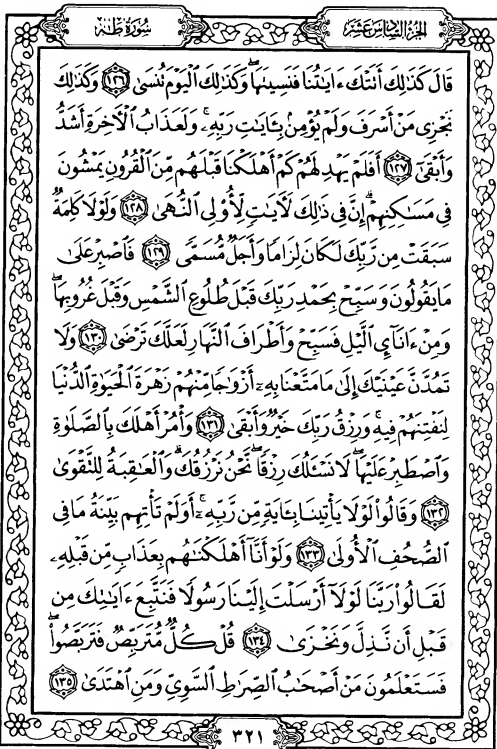 سُورَةُ طه
الجزء السادس عشر
قَالَ كَذَٰلِكَ أَتَتْكَ ءَايَٰتُنَا فَنَسِيتَهَا ۖ وَكَذَٰلِكَ ٱلْيَوْمَ تُنسَىٰ ١٢٦ وَكَذَٰلِكَ
نَجْزِى مَنْ أَسْرَفَ وَلَمْ يُؤْمِنۢ بِـَٔايَٰتِ رَبِّهِۦ ۚ وَلَعَذَابُ ٱلْـَٔاخِرَةِ أَشَدُّ
وَأَبْقَىٰٓ ١٢٧ أَفَلَمْ يَهْدِ لَهُمْ كَمْ أَهْلَكْنَا قَبْلَهُم مِّنَ ٱلْقُرُونِ يَمْشُونَ
فِى مَسَٰكِنِهِمْ ۗ إِنَّ فِى ذَٰلِكَ لَـَٔايَٰتٍ لِّأُو۟لِى ٱلنُّهَىٰ ١٢٨ وَلَوْلَا كَلِمَةٌ
سَبَقَتْ مِن رَّبِّكَ لَكَانَ لِزَامًا وَأَجَلٌ مُّسَمًّى ١٢٩ فَٱصْبِرْ عَلَىٰ
مَا يَقُولُونَ وَسَبِّحْ بِحَمْدِ رَبِّكَ قَبْلَ طُلُوعِ ٱلشَّمْسِ وَقَبْلَ غُرُوبِهَا ۖ
وَمِنْ ءَانَآئِ ٱلَّيْلِ فَسَبِّحْ وَأَطْرَافَ ٱلنَّهَارِ لَعَلَّكَ تَرْضَىٰ ١٣٠ وَلَا
تَمُدَّنَّ عَيْنَيْكَ إِلَىٰ مَا مَتَّعْنَا بِهِۦٓ أَزْوَٰجًا مِّنْهُمْ زَهْرَةَ ٱلْحَيَوٰةِ ٱلدُّنْيَا
لِنَفْتِنَهُمْ فِيهِ ۚ وَرِزْقُ رَبِّكَ خَيْرٌ وَأَبْقَىٰ ١٣١ وَأْمُرْ أَهْلَكَ بِٱلصَّلَوٰةِ
وَٱصْطَبِرْ عَلَيْهَا ۖ لَا نَسْـَٔلُكَ رِزْقًا ۖ نَّحْنُ نَرْزُقُكَ ۗ وَٱلْعَٰقِبَةُ لِلتَّقْوَىٰ
١٣٢ وَقَالُوا۟ لَوْلَا يَأْتِينَا بِـَٔايَةٍ مِّن رَّبِّهِۦٓ ۚ أَوَلَمْ تَأْتِهِم بَيِّنَةُ مَا فِى
ٱلصُّحُفِ ٱلْأُولَىٰ ١٣٣ وَلَوْ أَنَّآ أَهْلَكْنَٰهُم بِعَذَابٍ مِّن قَبْلِهِۦ
لَقَالُوا۟ رَبَّنَا لَوْلَآ أَرْسَلْتَ إِلَيْنَا رَسُولًا فَنَتَّبِعَ ءَايَٰتِكَ مِن
قَبْلِ أَن نَّذِلَّ وَنَخْزَىٰ ١٣٤ قُلْ كُلٌّ مُّتَرَبِّصٌ فَتَرَبَّصُوا۟ ۖ
فَسَتَعْلَمُونَ مَنْ أَصْحَٰبُ ٱلصِّرَٰطِ ٱلسَّوِىِّ وَمَنِ ٱهْتَدَىٰ ١٣٥
٣٢١